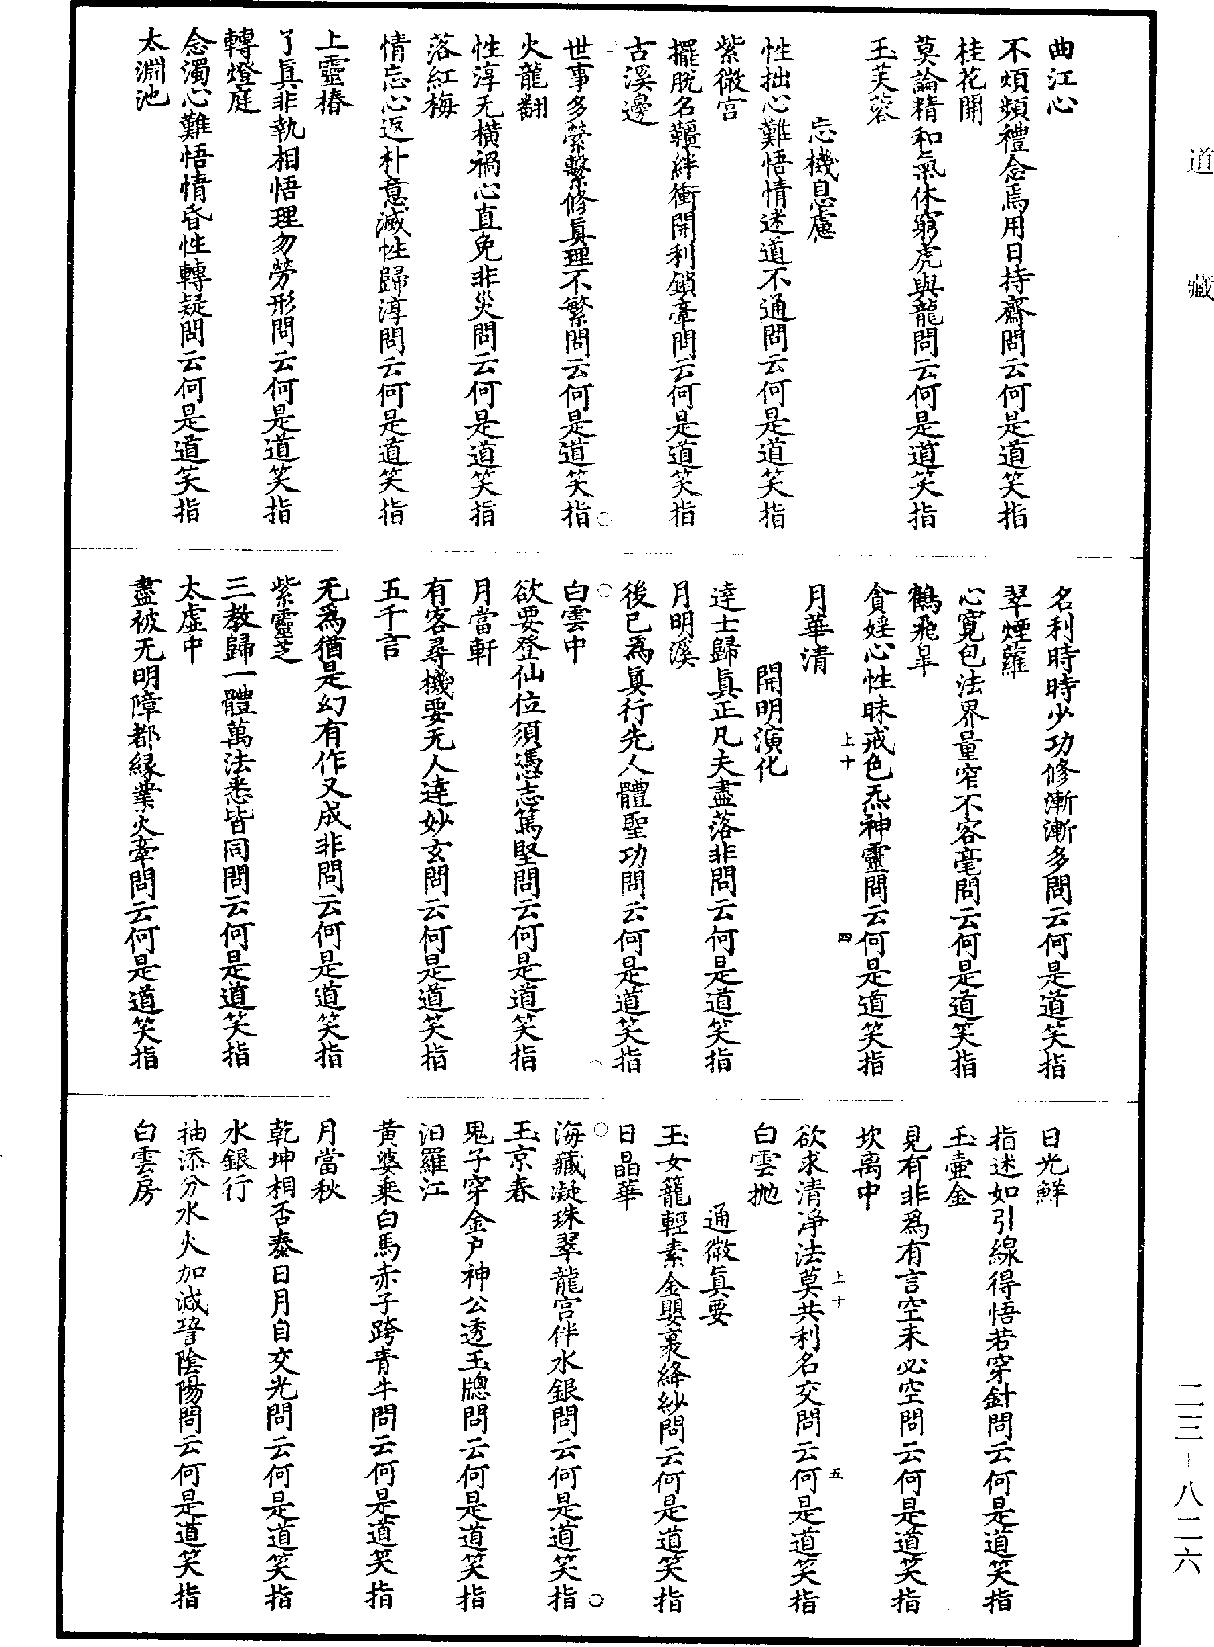 道藏
曲江心
不煩頻禮念焉用日持齋問云何是道笑指
桂花開
莫論精和氣休窮虎與龍問云何是道笑指
玉芙蓉
忘機息慮
性拙心難悟情迷道不通問云何是道笑指
紫微宮
擺脫名韁絆衝開利鎖牽問云何是道笑指
古溪邊
世事多縈繫修真理不繁問云何是道笑指
火龍翻
性淳无橫禍心直免非災問云何是道笑指
落紅梅
情忘心返朴意滅性歸淳問云何是道笑指
上靈椿
了真非執相悟理勿勞形問云何是道笑指
轉燈庭
念濁心難悟情昏性轉疑問云何是道笑指
太淵池
名利時時少功修漸漸多問云何是道笑指
翠煙蘿
心寬包法界量窄不容毫問云何是道笑指
鶴飛皋
貪婬心性昧戒色炁神靈問云何是道笑指
上十
四
月華清
開明演化
達士歸真正凡夫盡落非問云何是道笑指
月明溪
後己為真行先人體聖功問云何是道笑指
白雲中
欲要登仙位須憑志篤堅問云何是道笑指
月當軒
有客尋機要无人達妙玄問云何是道笑指
五千言
无爲猶是幻有作又成非問云何是道笑指
紫靈芝
三教歸一體萬法悉皆同問云何是道笑指
太虛中
盡被无明障都緣業火牽問云何是道笑指
日光鮮
指迷如引線得悟若穿針問云何是道笑指
玉壺金
見有非爲有言空未必空問云何是道笑指
坎离中
欲求清淨法莫共利名交問云何是道笑指
上十
五
白雲拋
通微真要
玉女籠輕素金嬰裹絳紗問云何是道笑指
日晶華
海藏凝珠翠龍宮伴水銀問云何是道笑指
玉京春
鬼子穿金戶神公透玉牕問云何是道笑指
汨羅江
黃婆乘白馬赤子跨青牛問云何是道笑指
月當秋
乾坤相否泰日月自交光問云何是道笑指
水銀行
抽添分水火加減詧陰陽問云何是道笑指
白雲房
二三-八二六